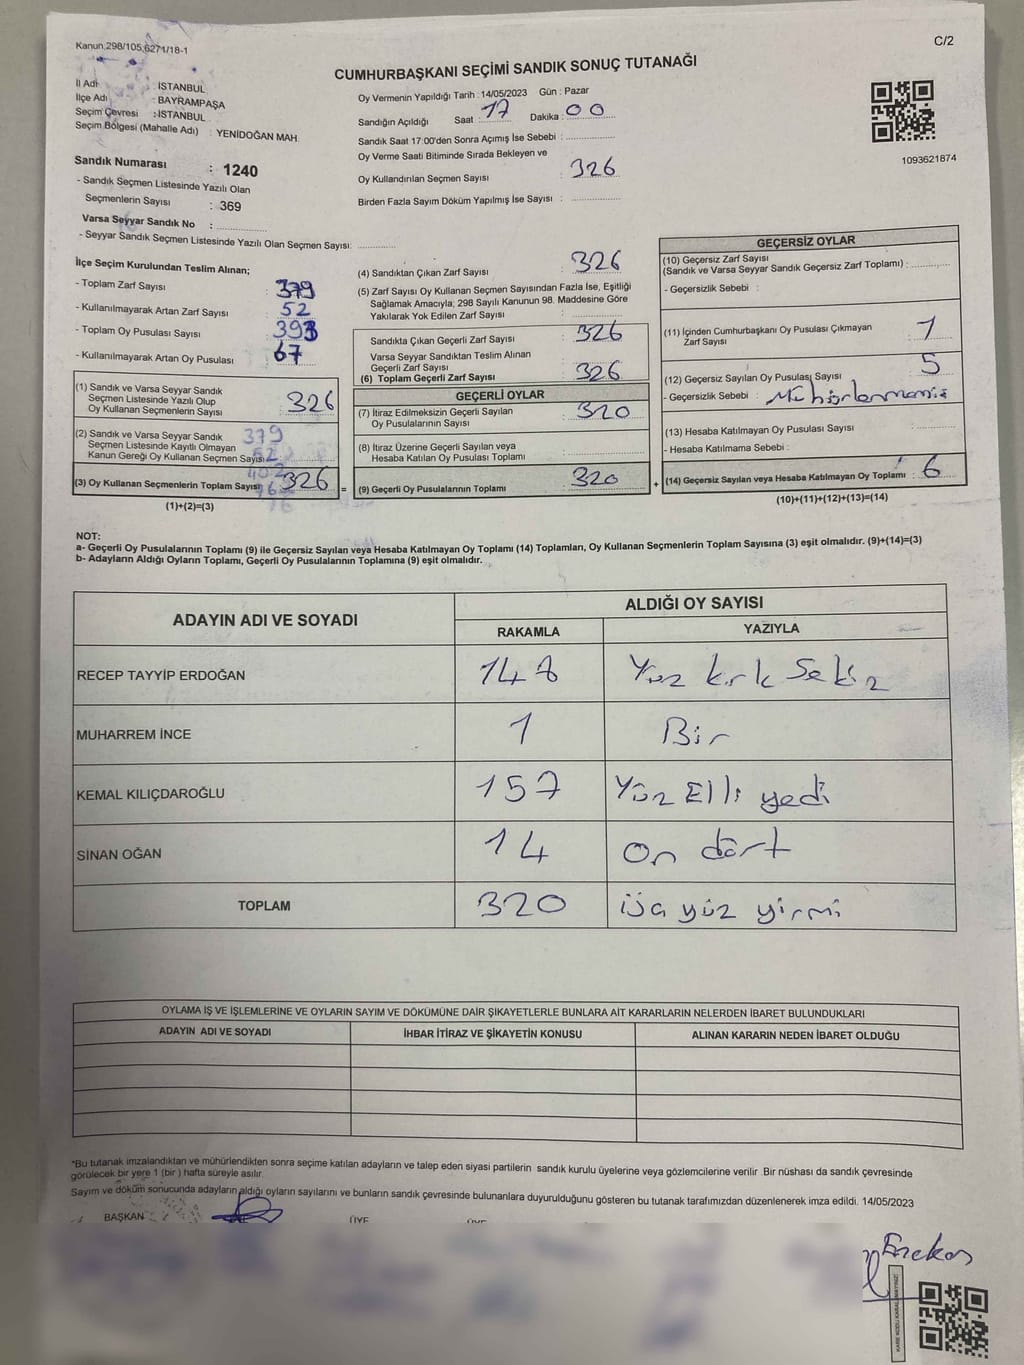 Kanun,298/105,6271/18-1
C/2
CUMHURBAŞKANI SEÇİMİ SANDIK SONUÇ TUTANAĞI
İl Adı : İSTANBUL
İlçe Adı : BAYRAMPAŞA
Seçim Çevresi : İSTANBUL
Seçim Bölgesi (Mahalle Adı) : YENİDOĞAN MAH.
Sandık Numarası : 1240
- Sandık Seçmen Listesinde Yazılı Olan
Seçmenlerin Sayısı : 369
Varsa Seyyar Sandık No :
- Seyyar Sandık Seçmen Listesinde Yazılı Olan Seçmen Sayısı:
Oy Vermenin Yapıldığı Tarih : 14/05/2023 Gün : Pazar
Sandığın Açıldığı Saat : 17 Dakika : 00
Sandık Saat 17:00'den Sonra Açımış İse Sebebi :
Oy Verme Saati Bitiminde Sırada Bekleyen ve
Oy Kullandırılan Seçmen Sayısı : 326
Birden Fazla Sayım Döküm Yapılmış İse Sayısı :
1093621874
İlçe Seçim Kurulundan Teslim Alınan;
- Toplam Zarf Sayısı : 379
- Kullanılmayarak Artan Zarf Sayısı : 52
- Toplam Oy Pusulası Sayısı : 393
- Kullanılmayarak Artan Oy Pusulası : 67
(1) Sandık ve Varsa Seyyar Sandık
Seçmen Listesinde Yazılı Olup
Oy Kullanan Seçmenlerin Sayısı : 326
(2) Sandık ve Varsa Seyyar Sandık 379
Seçmen Listesinde Kayıtlı Olmayan
Kanun Gereği Oy Kullanan Seçmen Sayısı 52
(3) Oy Kullanan Seçmenlerin Toplam Sayısı 326 =
(1)+(2)=(3)
(4) Sandıktan Çıkan Zarf Sayısı : 326
(5) Zarf Sayısı Oy Kullanan Seçmen Sayısından Fazla İse, Eşitliği
Sağlamak Amacıyla; 298 Sayılı Kanunun 98. Maddesine Göre
Yakılarak Yok Edilen Zarf Sayısı :
Sandıkta Çıkan Geçerli Zarf Sayısı : 326
Varsa Seyyar Sandıktan Teslim Alınan
Geçerli Zarf Sayısı :
(6) Toplam Geçerli Zarf Sayısı : 326
GEÇERLİ OYLAR
(7) İtiraz Edilmeksizin Geçerli Sayılan : 320
Oy Pusulalarının Sayısı
(8) İtiraz Üzerine Geçerli Sayılan veya
Hesaba Katılan Oy Pusulası Toplamı :
(9) Geçerli Oy Pusulalarının Toplamı : 320 +
GEÇERSİZ OYLAR
(10) Geçersiz Zarf Sayısı
(Sandık ve Varsa Seyyar Sandık Geçersiz Zarf Toplamı) :
- Geçersizlik Sebebi :
(11) İçinden Cumhurbaşkanı Oy Pusulası Çıkmayan : 1
Zarf Sayısı
(12) Geçersiz Sayılan Oy Pusulası Sayısı : 5
- Geçersizlik Sebebi : Mühürlenmemiş
(13) Hesaba Katılmayan Oy Pusulası Sayısı :
- Hesaba Katılmama Sebebi :
(14) Geçersiz Sayılan veya Hesaba Katılmayan Oy Toplamı : 6
(10)+(11)+(12)+(13)=(14)
NOT:
a- Geçerli Oy Pusulalarının Toplamı (9) ile Geçersiz Sayılan veya Hesaba Katılmayan Oy Toplamı (14) Toplamları, Oy Kullanan Seçmenlerin Toplam Sayısına (3) eşit olmalıdır. (9)+(14)=(3)
b- Adayların Aldığı Oyların Toplamı, Geçerli Oy Pusulalarının Toplamına (9) eşit olmalıdır.
ADAYIN ADI VE SOYADI
ALDIĞI OY SAYISI
RAKAMLA YAZIYLA
RECEP TAYYİP ERDOĞAN 148 Yüz kırk Sekiz
MUHARREM İNCE 1 Bir
KEMAL KILIÇDAROĞLU 157 Yüz Elli yedi
SİNAN OĞAN 14 On dört
TOPLAM 320 üç yüz yirmi
OYLAMA İŞ VE İŞLEMLERİNE VE OYLARIN SAYIM VE DÖKÜMÜNE DAİR ŞİKAYETLERLE BUNLARA AİT KARARLARIN NELERDEN İBARET BULUNDUKLARI
ADAYIN ADI VE SOYADI İHBAR İTİRAZ VE ŞİKAYETİN KONUSU ALINAN KARARIN NEDEN İBARET OLDUĞU
*Bu tutanak imzalandıktan ve mühürlendikten sonra seçime katılan adayların ve talep eden siyasi partilerin sandık kurulu üyelerine veya gözlemcilerine verilir .Bir nüshası da sandık çevresinde
görülecek bir yere 1 (bir ) hafta süreyle asılır.
Sayım ve döküm sonucunda adayların aldığı oyların sayılarını ve bunların sandık çevresinde bulunanlara duyurulduğunu gösteren bu tutanak tarafımızdan düzenlenerek imza edildi. 14/05/2023
BAŞKAN ÜYE ÜYE